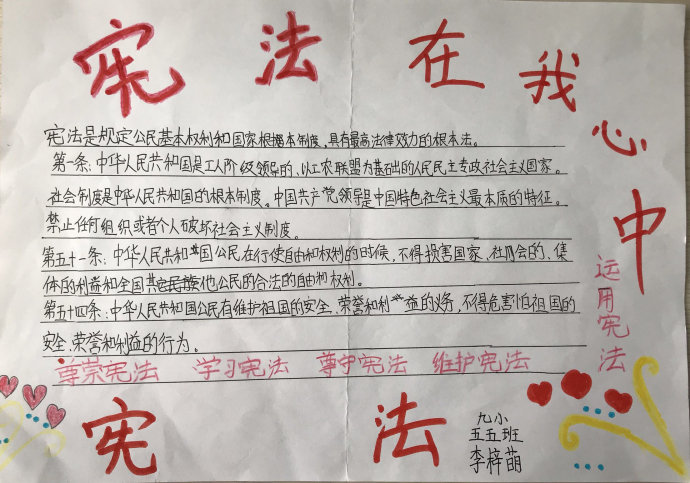 宪法在我心中
宪法是规定公民基本权利和国家根本制度，具有最高法律效力的根本法。
第一条：中华人民共和国是工人阶级领导的、以工农联盟为基础的人民民主专政社会主义国家。
社会制度是中华人民共和国的根本制度。中国共产党领导是中国特色社会主义最本质的特征。
禁止任何组织或者个人破坏社会主义制度。
第五十一条：中华人民共和国公民在行使自由和权利的时候，不得损害国家、社会的、集
体的利益和全国其它民族他公民的合法的自由和权利。
第五十四条：中华人民共和国公民有维护祖国的安全、荣誉和利益的义务，不得危害祖国的
安全、荣誉和利益的行为。
尊崇宪法 学习宪法 尊守宪法 维护宪法
运用宪法
宪法
九小
五五班
李梓萌